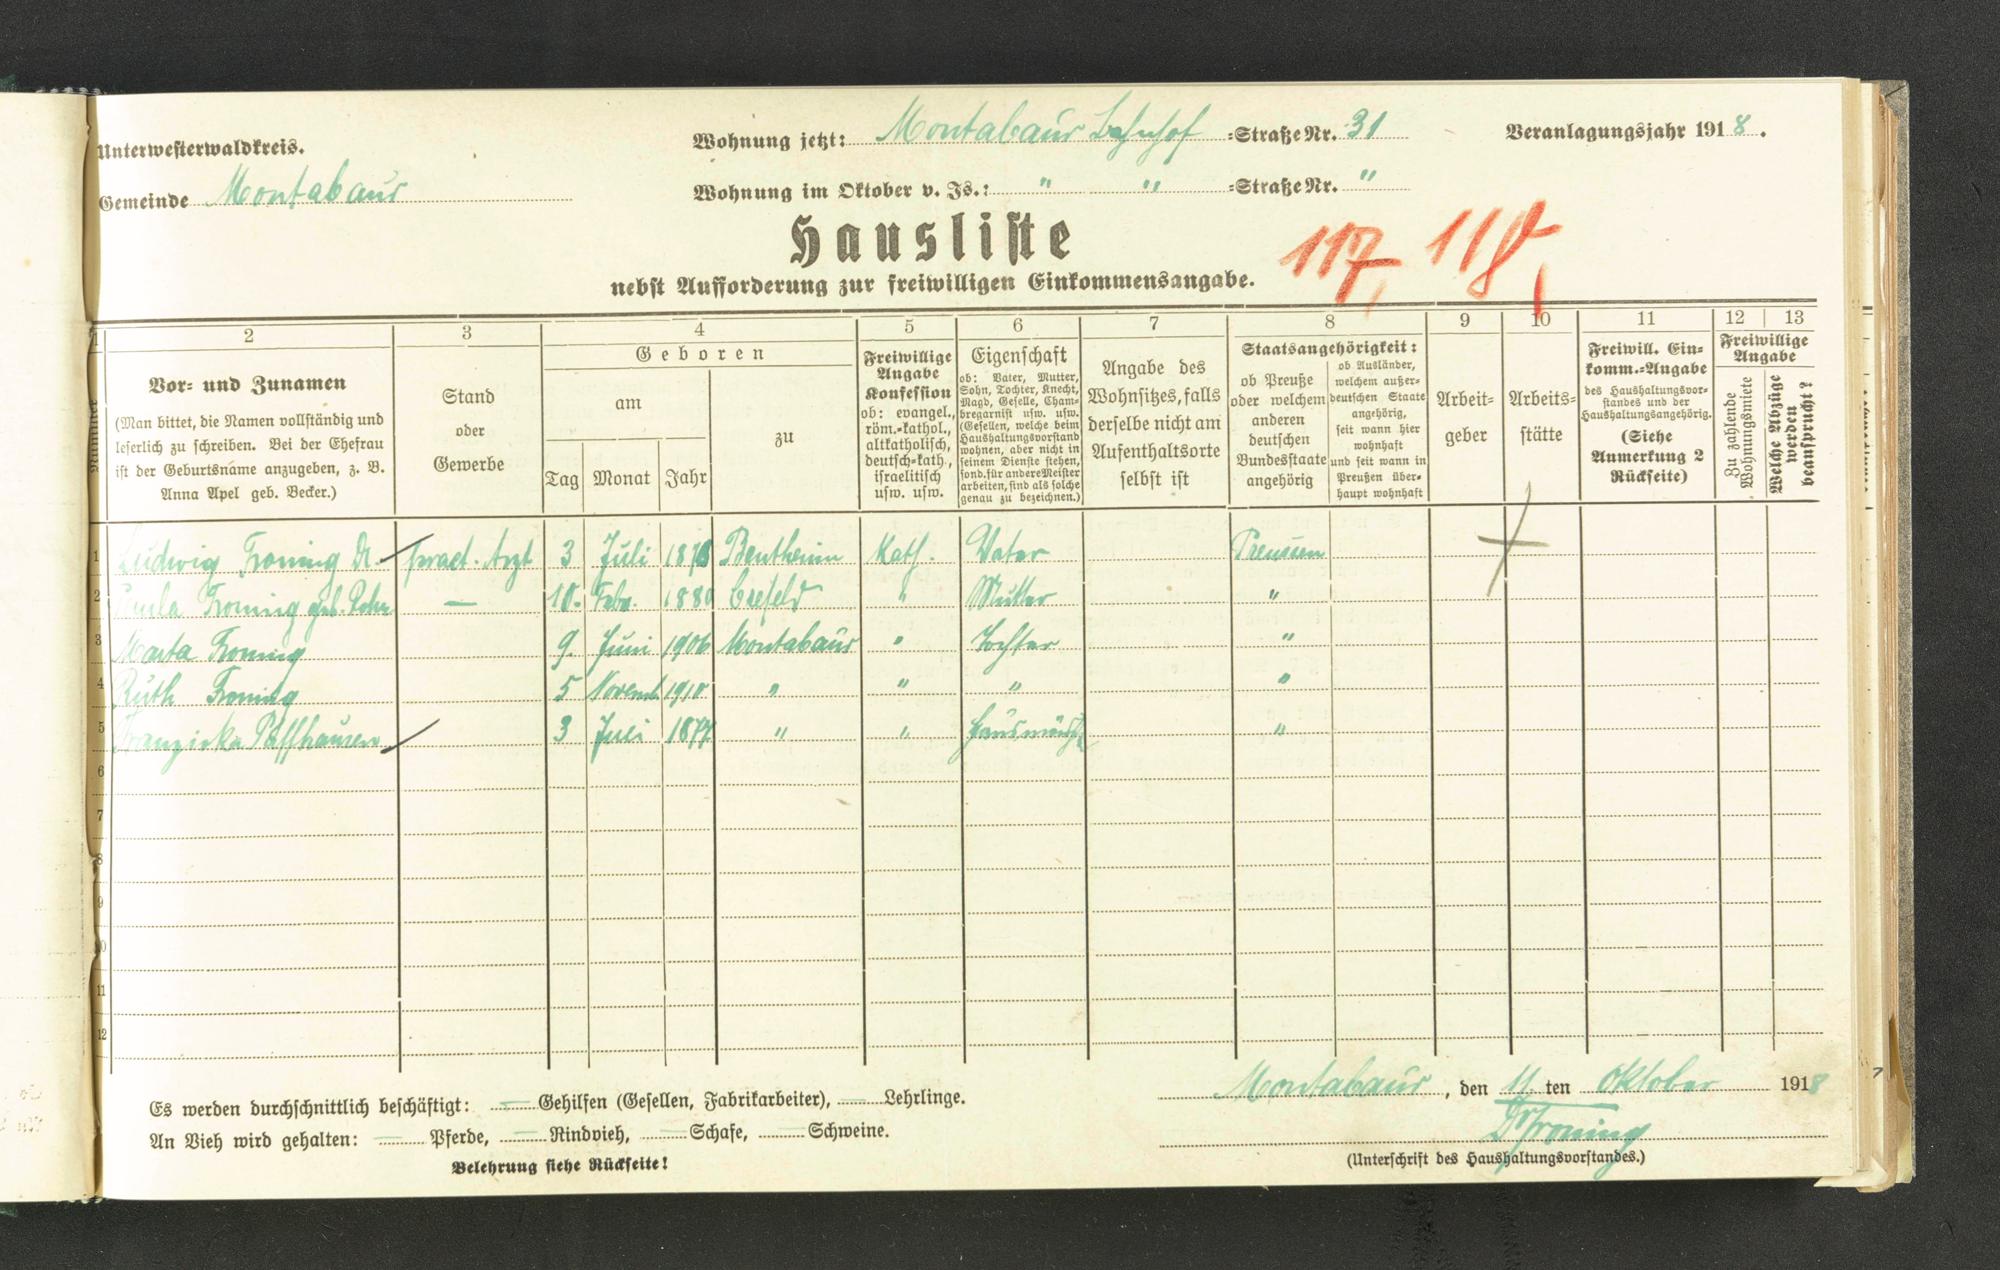 Unterwesterwaldkreis.
Gemeinde Montabaur
Wohnung jetzt: Montabaur Bahnhof -Straße Nr. 31
Veranlagungsjahr 1918.
Wohnung im Oktober v. Js.: " " -Straße Nr. "
Hausliste
117, 118,
nebst Aufforderung zur freiwilligen Einkommensangabe.
1 2 3 4 5 6 7 8 9 10 11 12 13
Nummer
Vor- und Zunamen
(Man bittet, die Namen vollständig und
leserlich zu schreiben. Bei der Ehefrau
ist der Geburtsname anzugeben, z. B.
Anna Apel geb. Becker.)
Stand
oder
Gewerbe
Geboren
am
Tag Monat Jahr
zu
Freiwillige
Angabe
Konfession
ob: evangel.,
röm.-kathol.,
altkatholisch,
deutsch-kath.,
israelitisch
usw. usw.
Eigenschaft
ob: Vater, Mutter,
Sohn, Tochter, Knecht,
Magd, Geselle, Cham-
bregarnist usw. usw.
(Gesellen, welche beim
Haushaltungsvorstand
wohnen, aber nicht in
seinem Dienste stehen,
sond. für andere Meister
arbeiten, sind als solche
genau zu bezeichnen.)
Angabe des
Wohnsitzes, falls
derselbe nicht am
Aufenthaltsorte
selbst ist
Staatsangehörigkeit:
ob Preuße
oder welchem
anderen
deutschen
Bundesstaate
angehörig
ob Ausländer,
welchem außer-
deutschen Staate
angehörig,
seit wann hier
wohnhaft
und seit wann in
Preußen über-
haupt wohnhaft
Arbeit-
geber
Arbeits-
stätte
Freiwill. Ein-
komm.-Angabe
des Haushaltungsvor-
standes und der
Haushaltungsangehörig.
(Siehe
Anmerkung 2
Rückseite)
Freiwillige
Angabe
Zu zahlende
Wohnungsmiete
Welche Abzüge
werden
beansprucht?
1 Ludwig Froning Dr. pract. Arzt 3 Juli 1873 Bentheim Kath. Vater Preussen
2 Paula Froning geb. 10. Febr. 1880 Crefeld " Mutter "
3 Marta Froning 9. Juni 1906 Montabaur " Tochter "
4 Ruth Froning 5 Novemb 1910 " " " "
5 Franziska Paffhausen 3 Juli 1877 " " "
6
7
8
9
10
11
12
Es werden durchschnittlich beschäftigt: — Gehilfen (Gesellen, Fabrikarbeiter), — Lehrlinge.
An Vieh wird gehalten: — Pferde, — Rindvieh, — Schafe, — Schweine.
Belehrung siehe Rückseite!
Montabaur, den 11. ten Oktober 1918
Dr Froning
(Unterschrift des Haushaltungsvorstandes.)